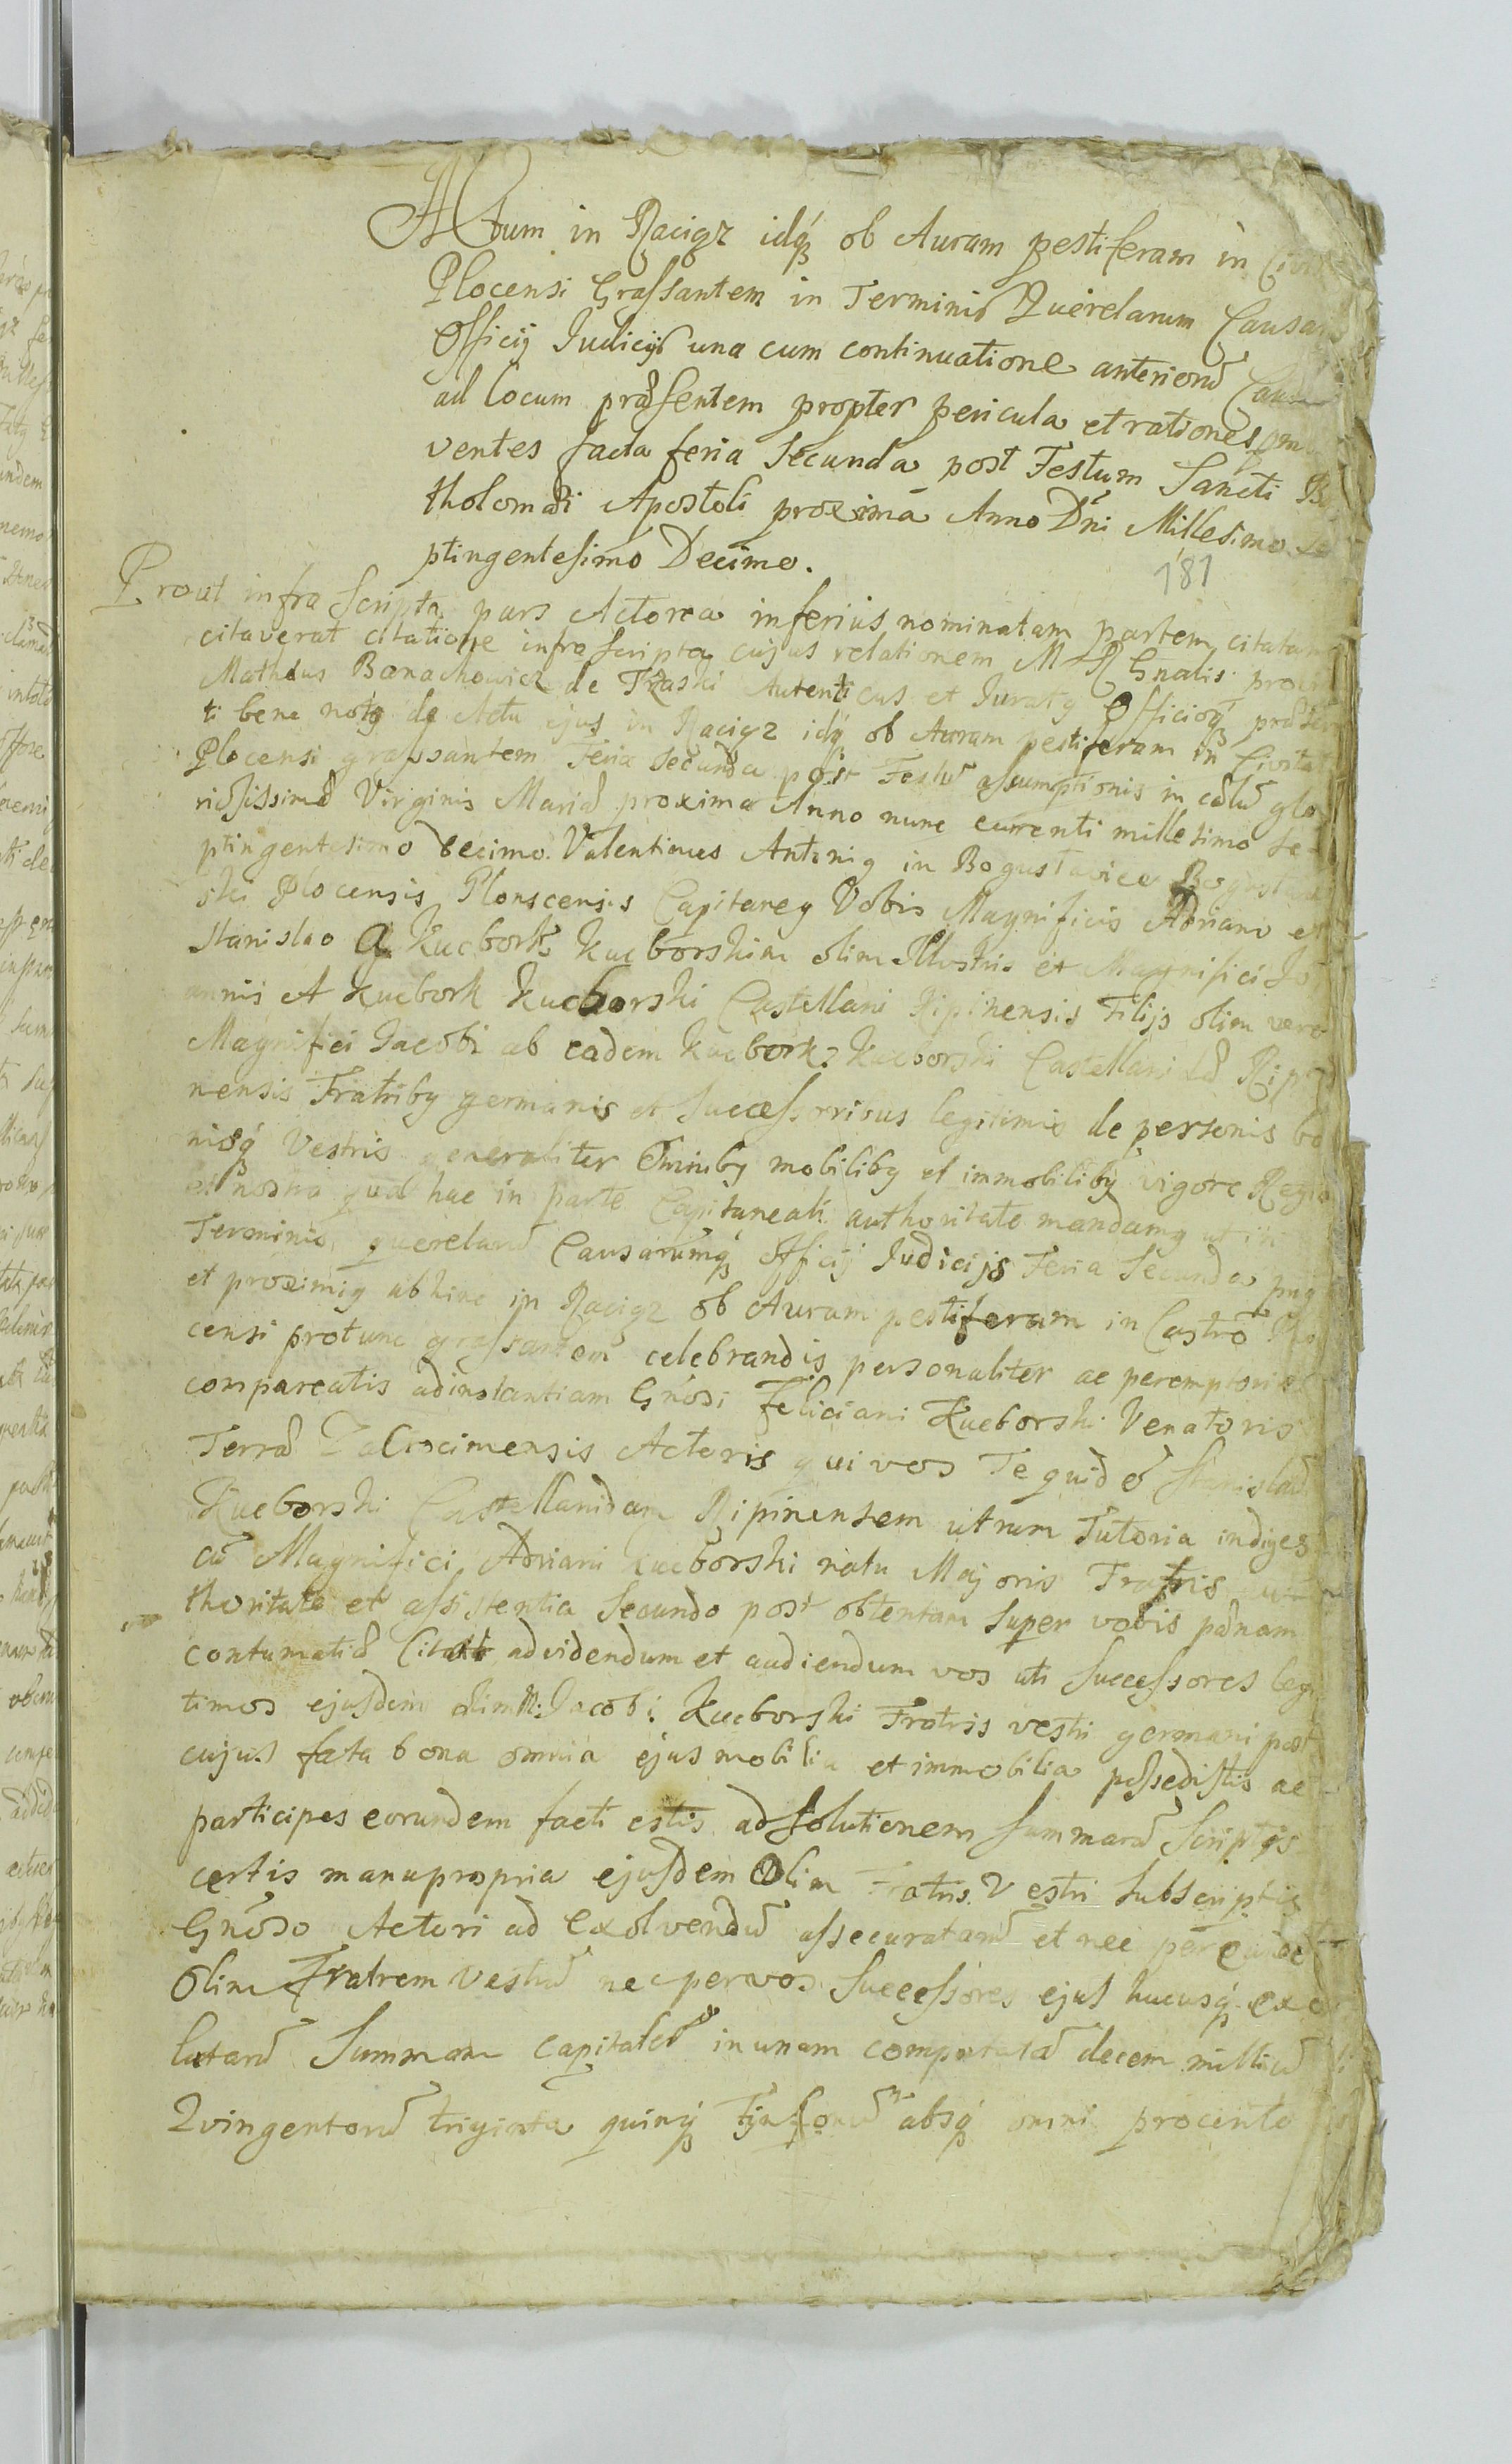 Actum in Raciąz idq́ꝫ ob Auram pestiferam in
Plocensi Grassantem in Terminis Querelarum
Officij Judicijs una cum continuatione anteriorū
ad locum præsentem propter pericula et rationes
ventes facta feria Secunda post Festum Sancti
tholomæi Apostoli proxima Anno Dńi Millesimo Se
ptingentesimo Decimo.
181
Prout infra scripta pars Actorea inferius nominatam partem citatam
citaverat citatione infra scripta cujus relationem M R Gnalis
Matheus Banachowicz de Autenticus et Juratꝰ Officioq́ꝫ
ti bene notꝰ de Actu ejus in Raciąz idq́ ob Auram pestiferam in Civitat
Plocensi grassantem Feria Secunda post Festū assumptionis in cælū glo
riosissimæ Virginis Mariæ proxima Anno nunc currenti millesimo Se
ptingentesimo decimo. Valentinus Antonius in Bogusławice
ski Plocensis Plonscensis Capitaneꝰ Vobis Magnificis Adriano et
Stanislao a Kucbork Kucborskim olim Illustris et Magnifici Jo
annis A Kucbork Kucborski Castellani Ripinensis Filijs olim vero
Magnifici Jacobi ab eadem Kucbork Kucborski Castellani Ripi
nensis Fratribꝰ germanis et Successoribus legitimis de personis bo
nisq́ Vestris generaliter Omnibꝰ mobilibꝰ et immobilibꝰ vigore Regia
et nostra qua hac in parte Capitaneali authoritate mandamꝰ ut in
Terminis querelarū Causarumq́ꝫ Officij Judicijs Feria Secunda
et proximis abhinc in Raciąz ob Auram pestiferam in Castro Plo
censi protunc grassantem celebrandis personaliter ac peremptorie
compareatis adinstantiam Gńosi Feliciani Kucborski Venatoris
Terræ Actoris qui vos Te quidē Stanislaū
Kucborski Castellanidam Ripinensem utrum Tutoria indiges
cū Magnifici Adriani Kucborski natu Majoris Fratris au
thoritate et assistentia Secundo post obtentam super vobis pænam
contumatiæ Citat advidendum et audiendum vos uti successores legi
timos ejusdem olim M: Jacobi Kucborski Fratris vestri germani post
cujus fata bona omnia ejus mobilia et immobilia possedistis ac
participes eorundem facti estis ad Solutionem summarū Scriptis
certis manupropria ejusdem Olim Fratris Vestri Subscriptis
Gńoso Actori ad Exolvendū assecuratarū et nec per eundē
Olim Fratrem Vestrū nec per vos Successores ejus hucusq́ exo
lutarū Summam capitalē in unam computatā decem milliū
Quingentorū triginta quinq́ꝫ absq́ omni procento